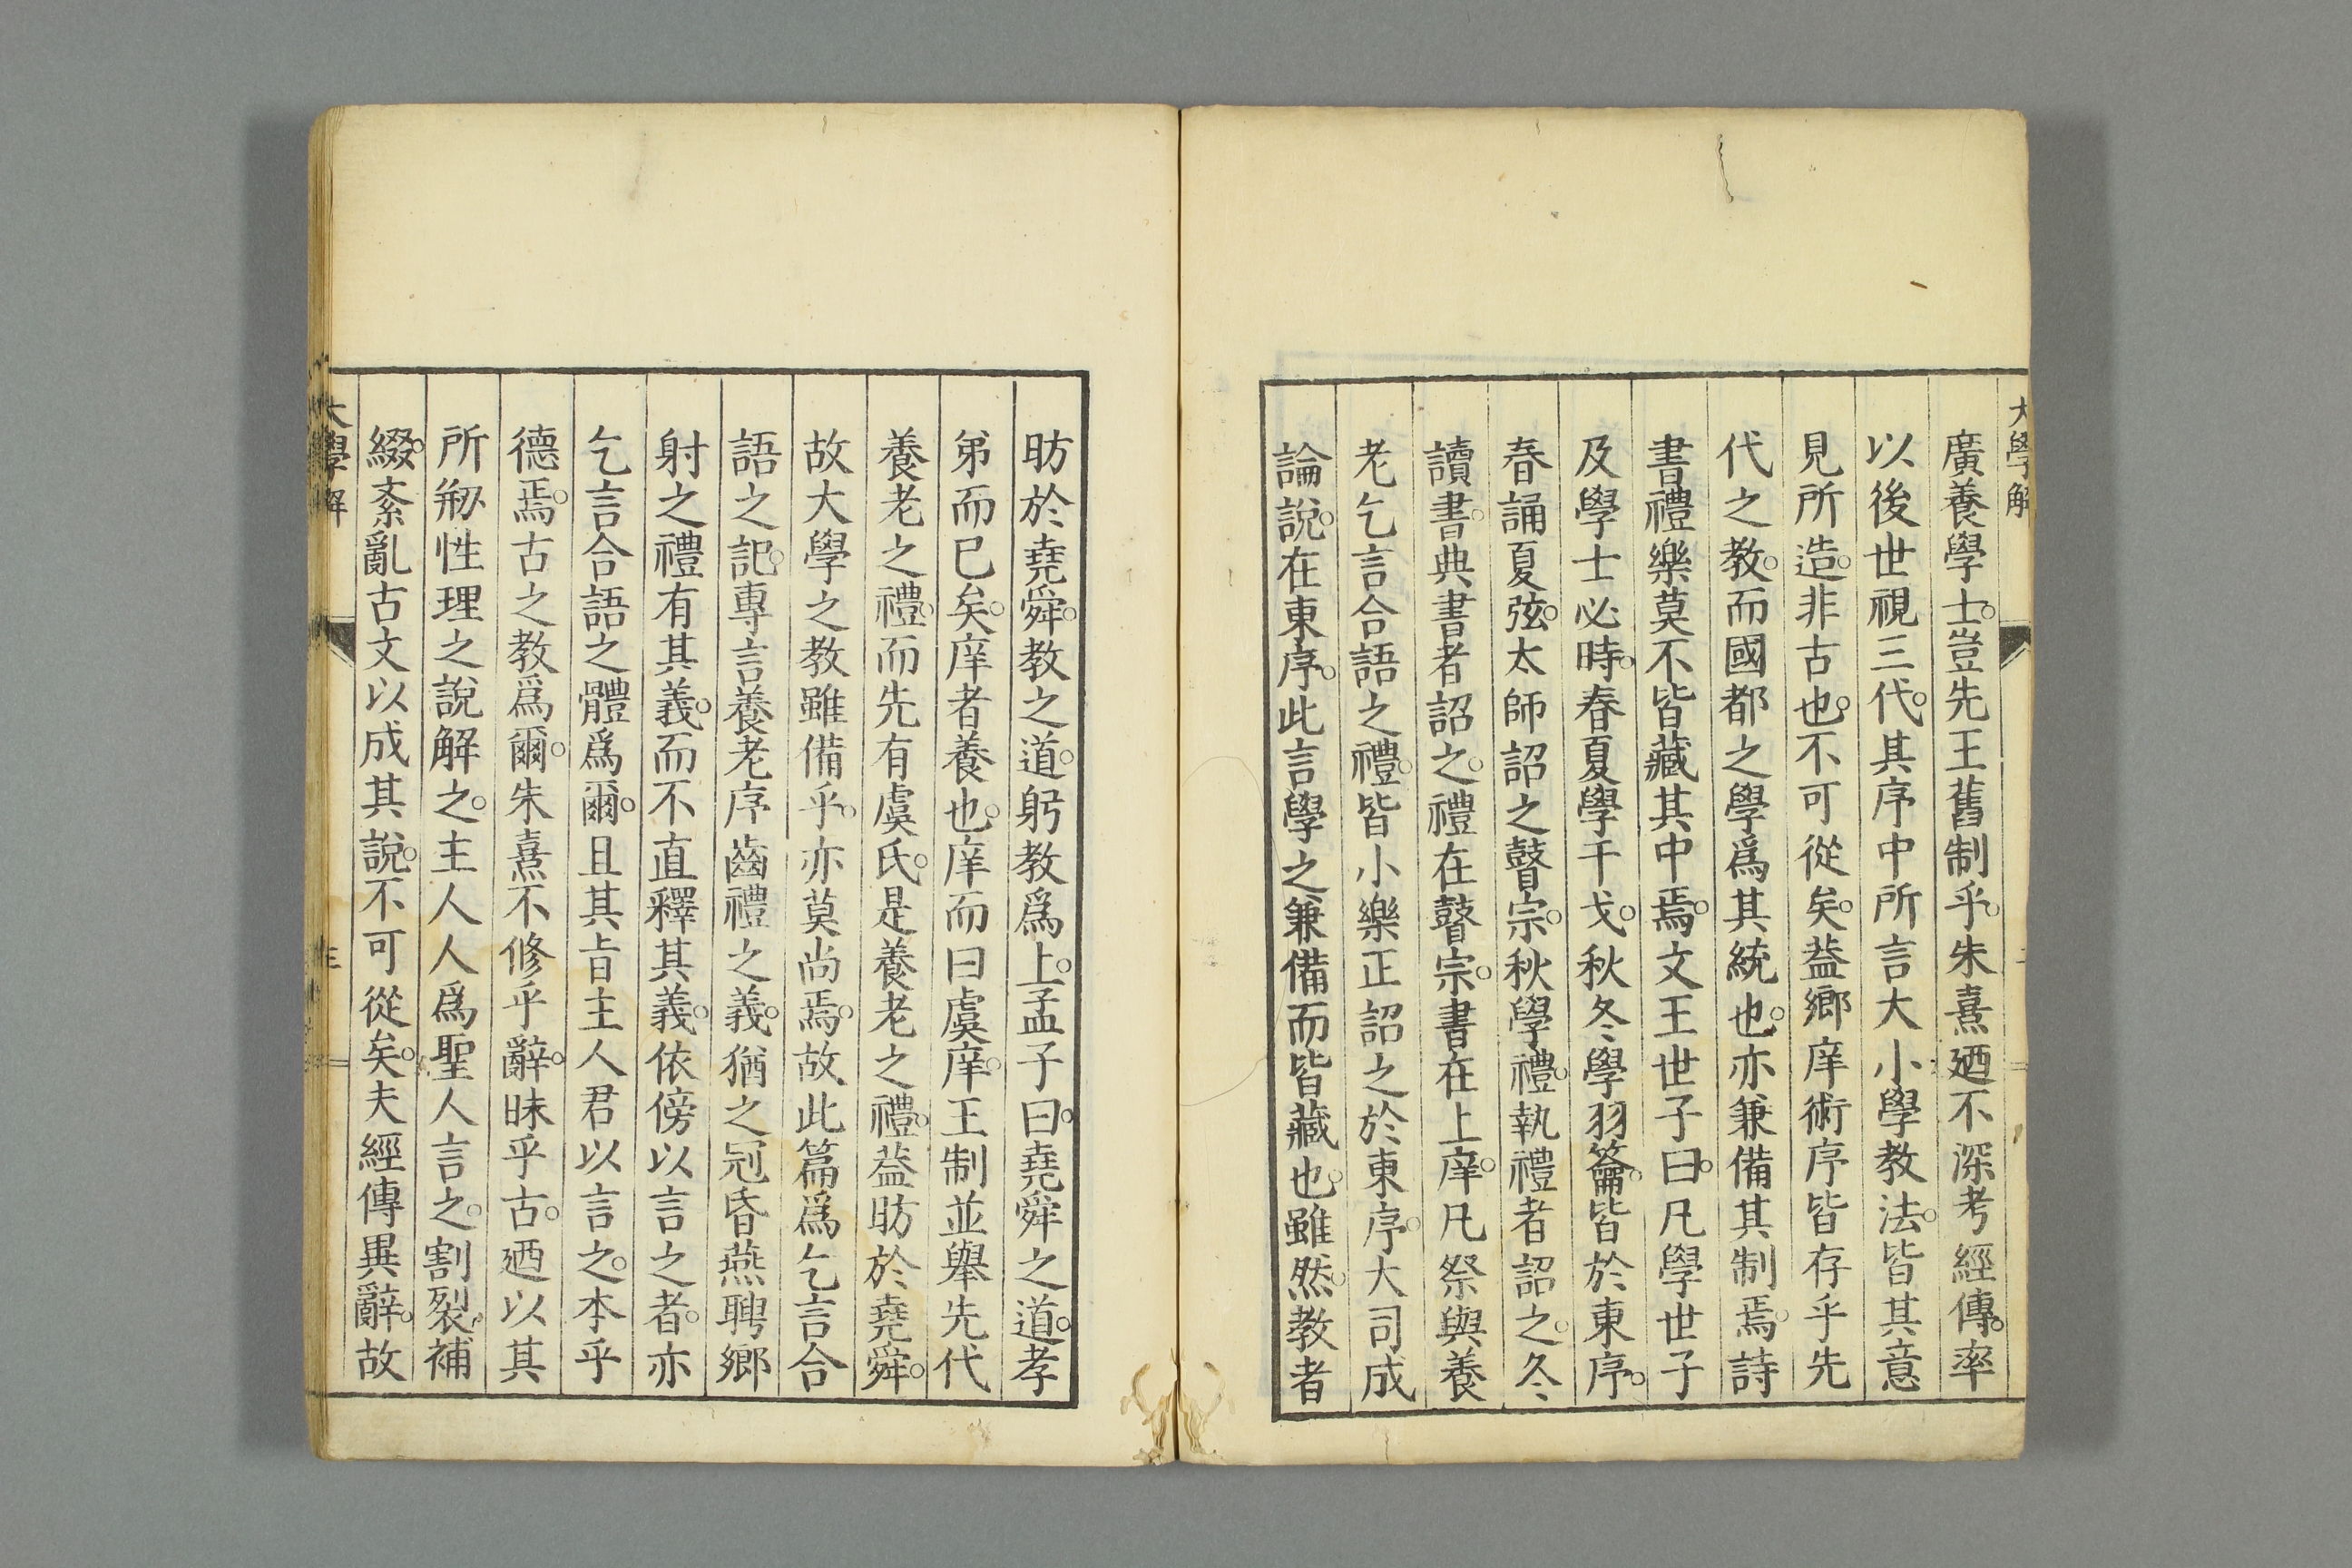 大學解
廣養學士。豈先王舊制乎。朱熹廼不深考經傳。率
以後世視三代。其序中所言大小學教法。皆其意
見所造。非古也。不可從矣。蓋鄉庠術序皆存乎先
代之教。而國都之學爲其統也。亦兼備其制焉。詩
書禮樂莫不皆藏其中焉。文王世子曰。凡學世子
及學士必時。春夏學干戈。秋冬學羽籥。皆於東序。
春誦夏弦。太師詔之瞽宗。秋學禮。執禮者詔之。冬
讀書。典書者詔之。禮在瞽宗。書在上庠。凡祭與養
老乞言合語之禮。皆小樂正詔之於東序。大司成
論說。在東序。此言學之兼備而皆藏也。雖然。教者
昉於堯舜。教之道。躬教爲上。孟子曰。堯舜之道。孝
弟而已矣。庠者養也。庠而曰虞庠。王制並舉先代
養老之禮。而先有虞氏。是養老之禮。蓋昉於堯舜。
故大學之教雖備乎。亦莫尚焉。故此篇爲乞言合
語之記。專言養老序齒禮之義。猶之冠昏燕聘鄉
射之禮有其義。而不直釋其義。依傍以言之者。亦
乞言合語之體爲爾。且其旨主人君以言之。本乎
德焉。古之教爲爾。朱熹不修乎辭。昧乎古。廼以其
所刱性理之說解之。主人人爲聖人言之。割裂補
綴。紊亂古文以成其說。不可從矣。夫經傳異辭。故
大學解